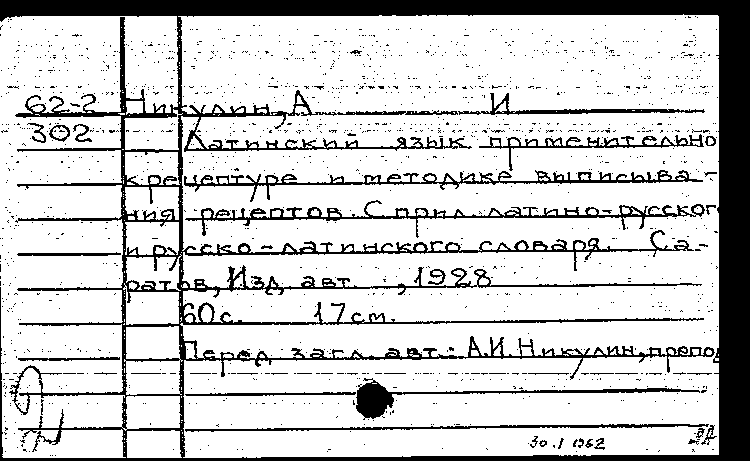 62-2 Никулин, А И
302 Латинский язык применительно
к рецептуре и методике выписыва-
ния рецептов. С прил. латино-русског
и русско-латинского словаря. Са-
ратов, Изд. авт., 1928
60с. 17см.
Перед загл. авт.: А.И.Никулин, препод
30.I 1962